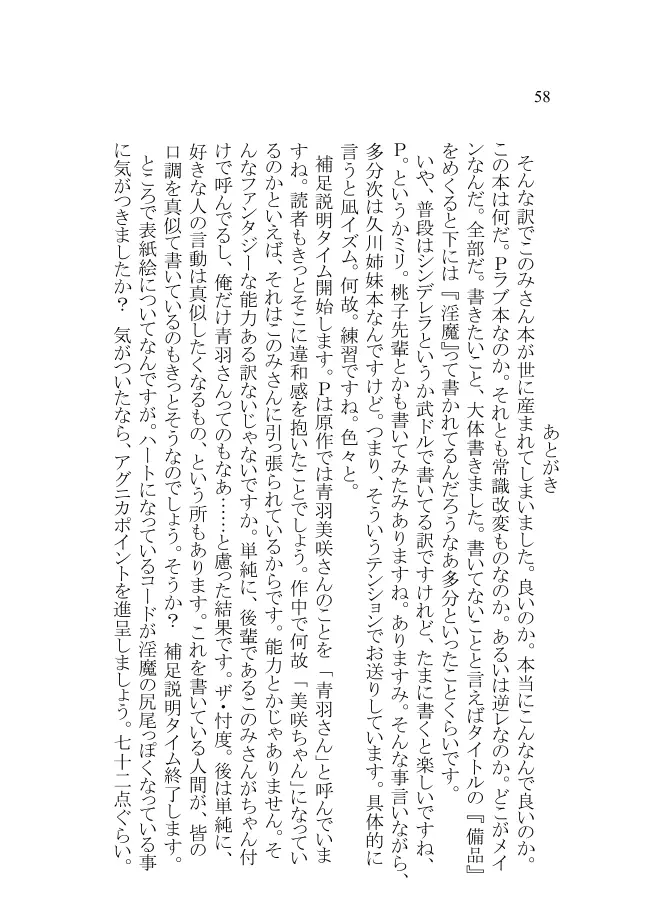 58
あとがき
そんな訳でこのみさん本が世に産まれてしまいました。良いのか。本当にこんなんで良いのか。
この本は何だ。Ｐラブ本なのか。それとも常識改変ものなのか。あるいは逆レなのか。どこがメイ
ンなんだ。全部だ。書きたいこと、大体書きました。書いてないことと言えばタイトルの『備品』
をめくると下には『淫魔』って書かれてるんだろうなあ多分といったことくらいです。
いや、普段はシンデレラというか武ドルで書いてる訳ですけれど、たまに書くと楽しいですね、
Ｐ。というかミリ。桃子先輩とかも書いてみたみありますね。ありますみ。そんな事言いながら、
多分次は久川姉妹本なんですけど。つまり、そういうテンションでお送りしています。具体的に
言うと凪イズム。何故。練習ですね。色々と。
補足説明タイム開始します。Ｐは原作では青羽美咲さんのことを「青羽さん」と呼んでいま
すね。読者もきっとそこに違和感を抱いたことでしょう。作中で何故「美咲ちゃん」になってい
るのかといえば、それはこのみさんに引っ張られているからです。能力とかじゃありません。そ
んなファンタジーな能力ある訳ないじゃないですか。単純に、後輩であるこのみさんがちゃん付
けで呼んでるし、俺だけ青羽さんってのもなあ……と慮った結果です。ザ・忖度。後は単純に、
好きな人の言動は真似したくなるもの、という所もあります。これを書いている人間が、皆の
口調を真似て書いているのもきっとそうなのでしょう。そうか？　補足説明タイム終了します。
ところで表紙絵についてなんですが。ハートになっているコードが淫魔の尻尾っぽくなっている事
に気がつきましたか？　気がついたなら、アグニカポイントを進呈しましょう。七十二点ぐらい。